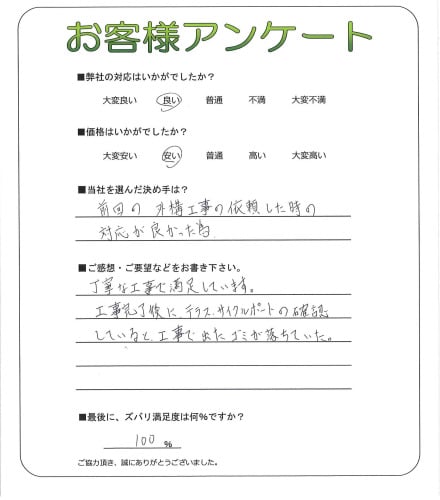 お客様アンケート
■弊社の対応はいかがでしたか？
大変良い 良い 普通 不満 大変不満
■価格はいかがでしたか？
大変安い 安い 普通 高い 大変高い
■当社を選んだ決め手は？
前回の外構工事の依頼した時の
対応が良かった為
■ご感想・ご要望などをお書き下さい。
丁寧な工事で満足しています。
工事完了後に、テラス、サイクルポートの確認
していると、工事で出たゴミが落ちていた。
■最後に、ズバリ満足度は何%ですか？
100 %
ご協力頂き、誠にありがとうございました。